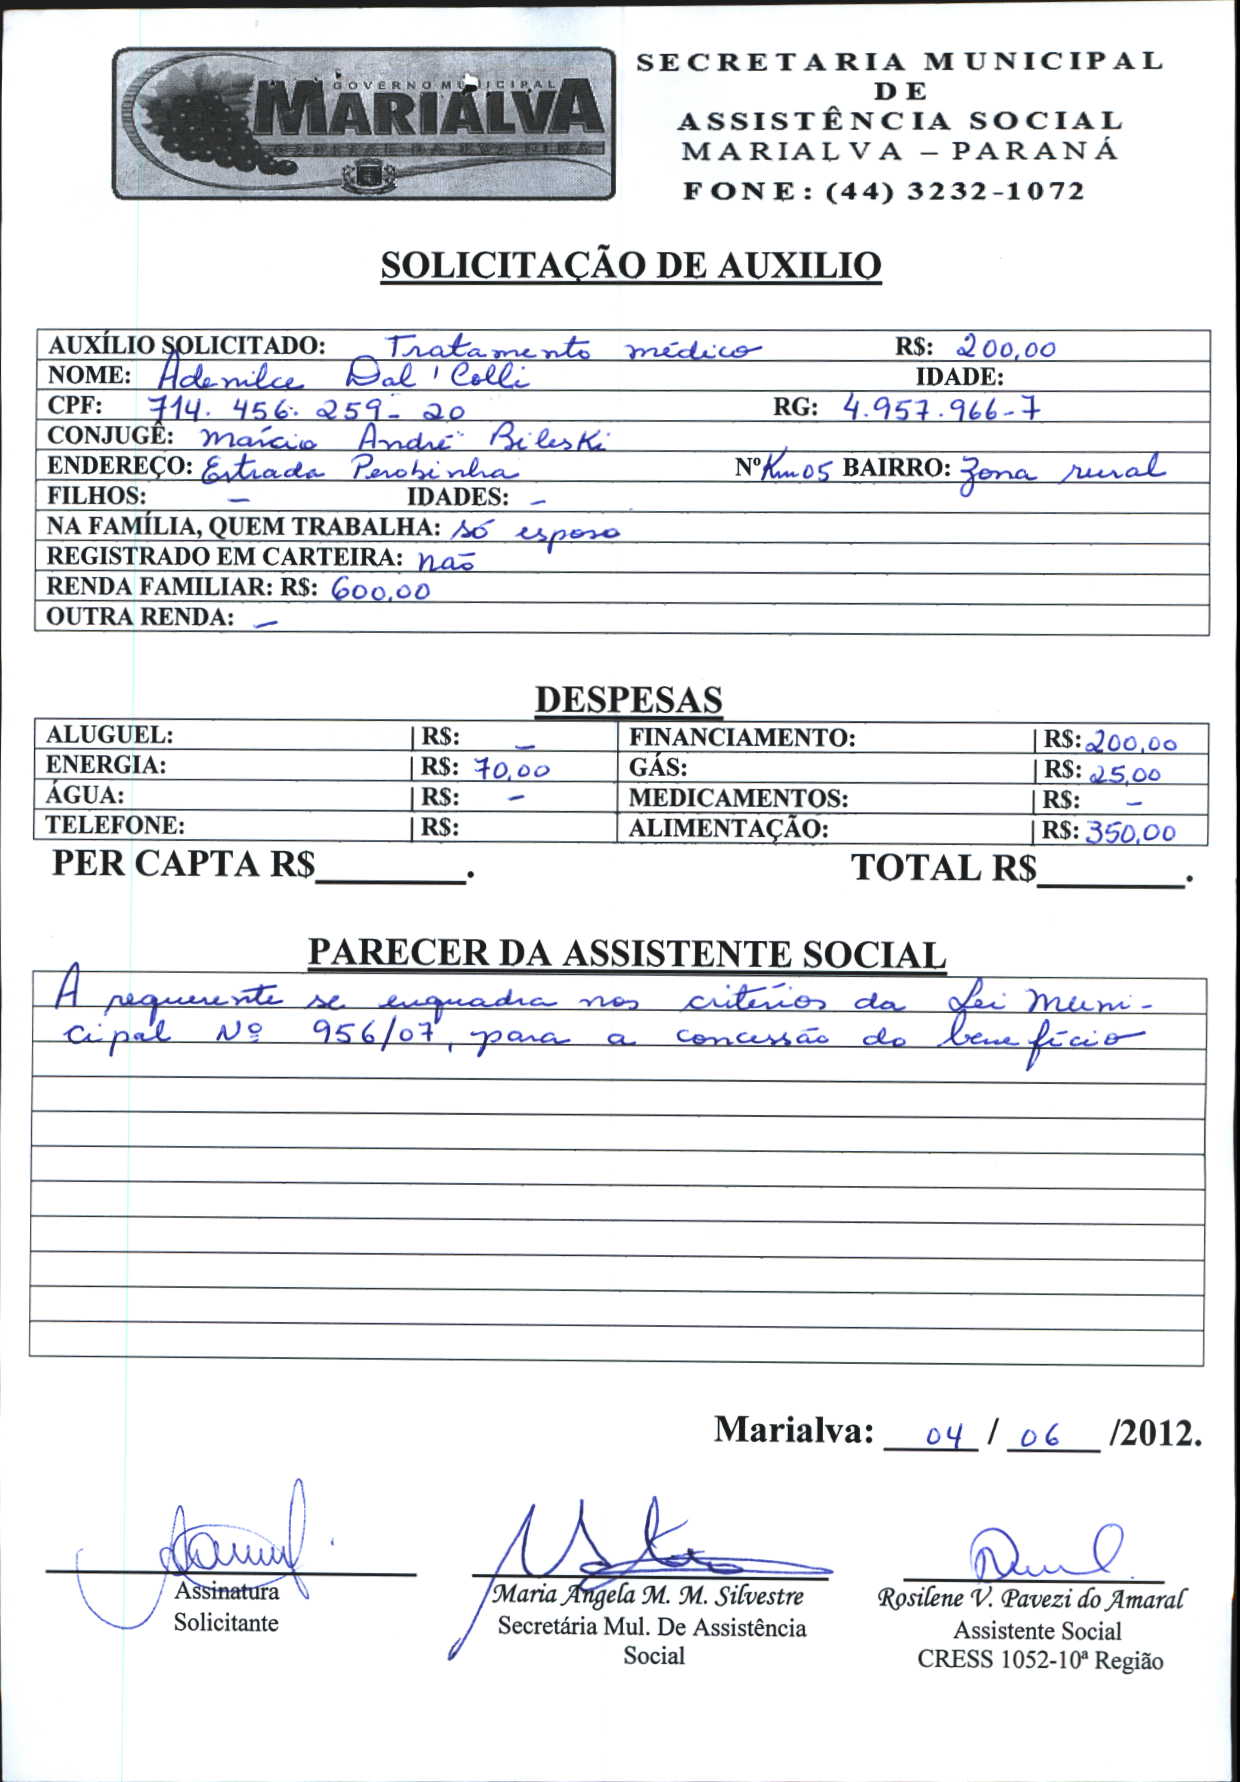 GOVERNO MUNICIPAL
MARIALVA
CAPITAL DA UVA FINA
SECRETARIA MUNICIPAL
DE
ASSISTÊNCIA SOCIAL
MARIALVA – PARANÁ
FONE: (44) 3232-1072
SOLICITAÇÃO DE AUXILIO
AUXÍLIO SOLICITADO: Tratamento médico R$: 200,00
NOME: Ademilce Dal'Colli IDADE:
CPF: 714.456.259-20 RG: 4.957.966-7
CONJUGÊ: Márcio André Bileski
ENDEREÇO: Estrada Perobinha Nº Km 05 BAIRRO: Zona rural
FILHOS: – IDADES: –
NA FAMÍLIA, QUEM TRABALHA: só esposo
REGISTRADO EM CARTEIRA: não
RENDA FAMILIAR: R$: 600,00
OUTRA RENDA: –
DESPESAS
ALUGUEL: R$: – FINANCIAMENTO: R$: 200,00
ENERGIA: R$: 70,00 GÁS: R$: 25,00
ÁGUA: R$: – MEDICAMENTOS: R$: –
TELEFONE: R$: ALIMENTAÇÃO: R$: 350,00
PER CAPTA R$________. TOTAL R$________.
PARECER DA ASSISTENTE SOCIAL
A requerente se enquadra nos critérios da Lei Muni-
cipal Nº 956/07, para a concessão do benefício
Marialva: 04 / 06 /2012.
Assinatura
Solicitante
Maria Ângela M. M. Silvestre
Secretária Mul. De Assistência
Social
Rosilene V. Pavezi do Amaral
Assistente Social
CRESS 1052-10ª Região